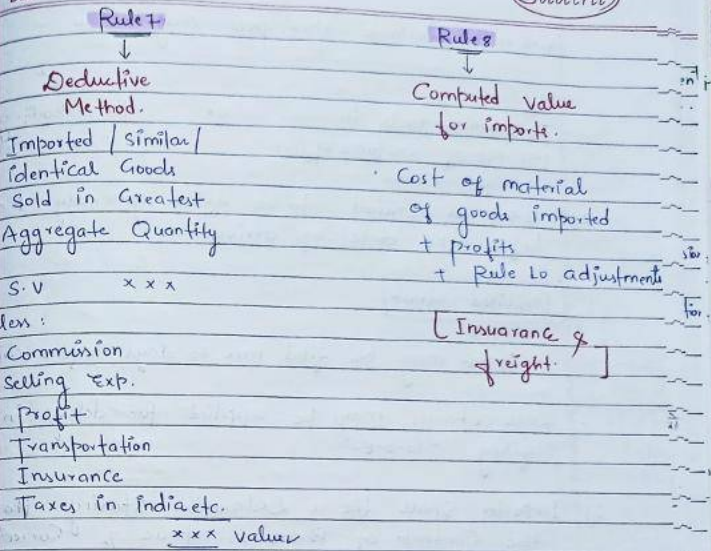 Rule 7
Deductive
Method.
Imported / Similar /
identical Goods
Sold in Greatest
Aggregate Quantity
S.V x x x
less :
Commission
Selling Exp.
Profit
Transportation
Insurance
Taxes in india etc.
x x x value
Rule 8
Computed value
for imports.
Cost of material
of goods imported
+ profits
+ Rule 10 adjustments
[ Insuarance &
freight. ]